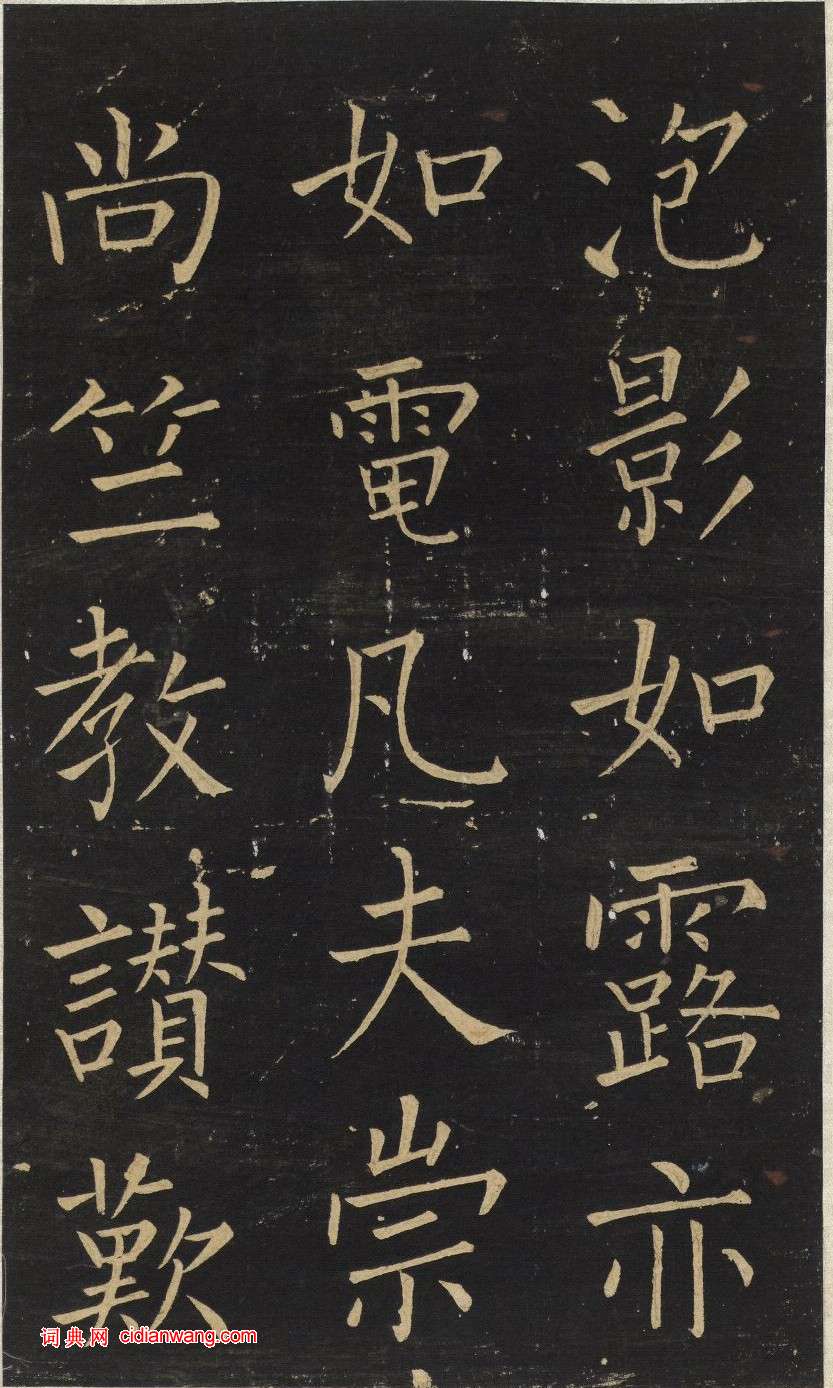 泡影如露亦
如電凡夫崇
尚竺教讃歎
词典网 cidianwang.com